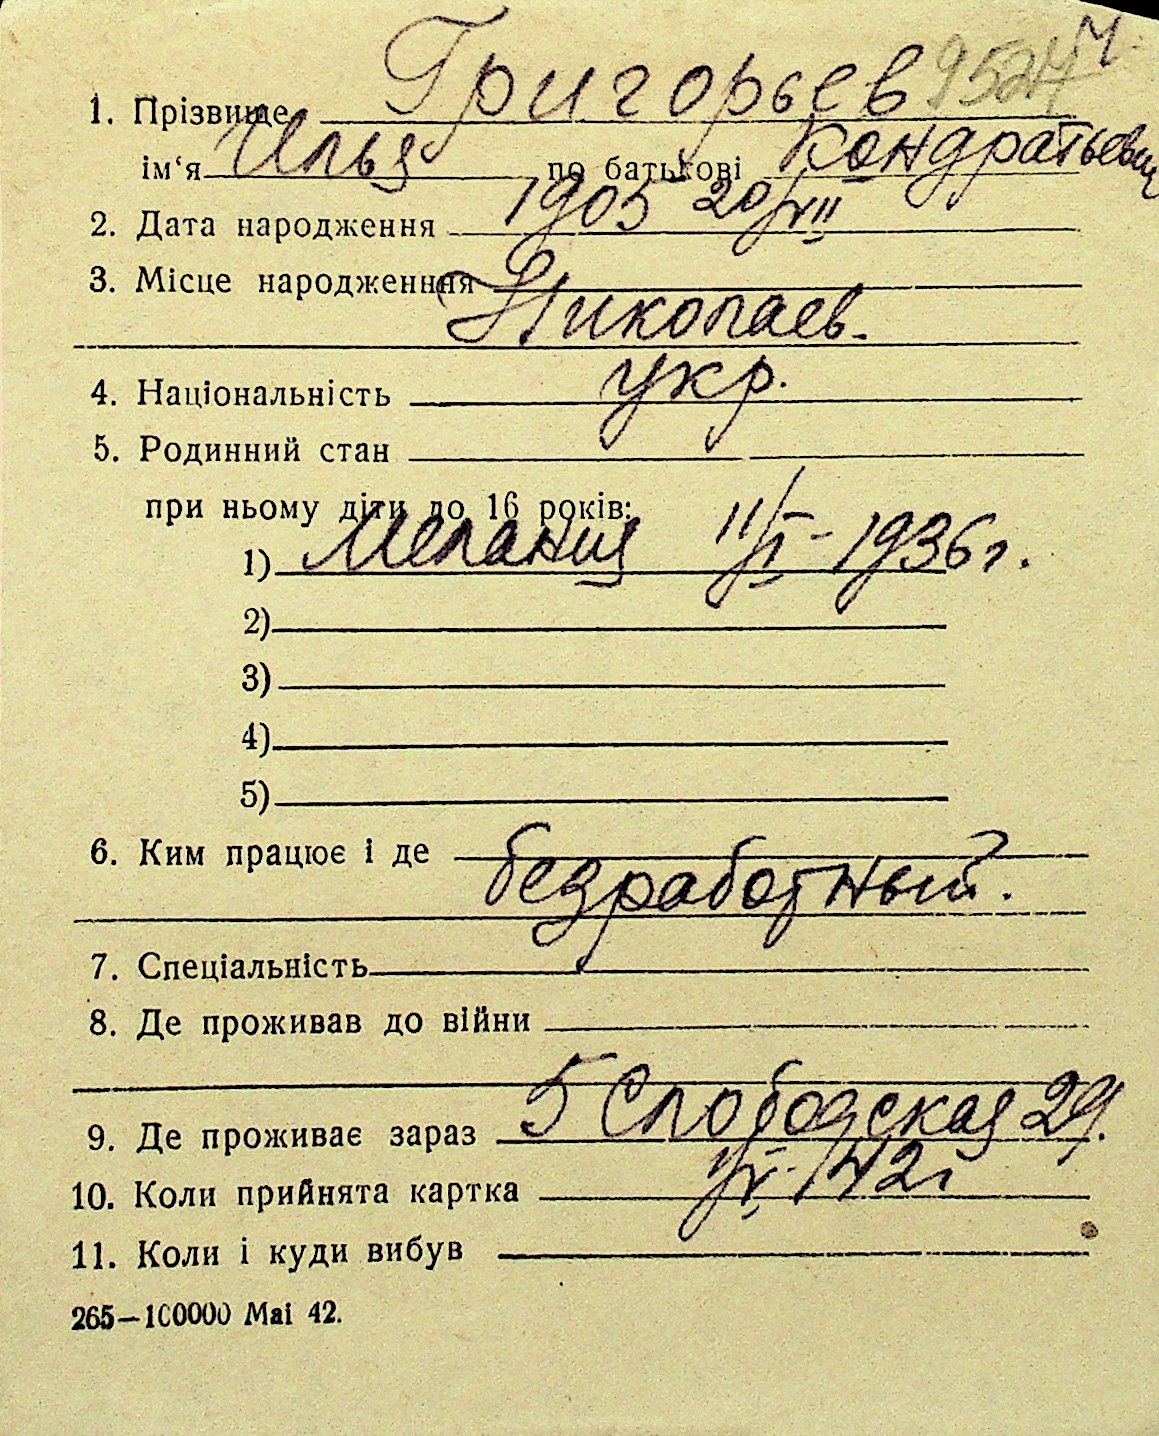 1. Прізвище Григорьев 9524 Ч.
ім‘я Илья по батькові Кондратьевич
2. Дата народження 1905 20/VII
3. Місце народженння
Николаев.
4. Національність укр.
5. Родинний стан
при ньому діти до 16 років:
1) Мелания 11/I - 1936 г.
2)
3)
4)
5)
6. Ким працює і де
безработный.
7. Спеціальність
8. Де проживав до війни
9. Де проживає зараз 5 Слободская 29.
10. Коли прийнята картка 42 г
11. Коли і куди вибув
265—100000 Mai 42.